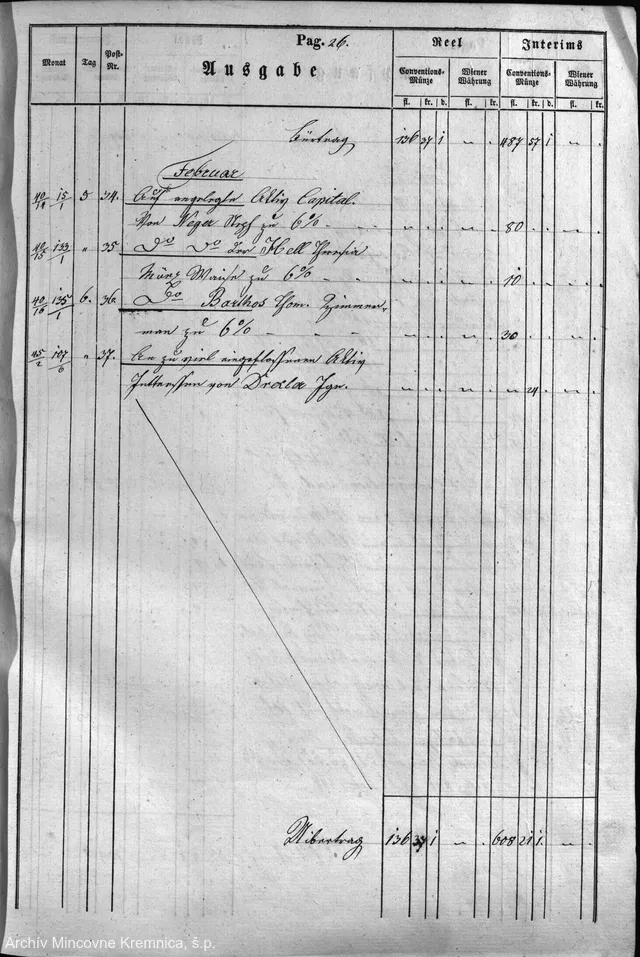 Pag. 26.
Monat Tag Post-Nr. Ausgabe Reel Interims
Conventions-Münze Wiener Währung Conventions-Münze Wiener Währung
fl. kr. d. fl. kr. fl. kr. d. fl. kr.
136 37 1 " " . 487 57 1 " " .
Februar
40/14 15/1 5 34. Auf angelegte Activ Capital.
Von Neger Steph zu 6% - - " " " " " " 80 " " " " .
40/15 133/1 " 35 Do Do Der Hell Theresia
Münz Waise zu 6% - - " " " " " " 10 " " " " .
40/16 135/1 6. 36. Do Barthos Thom. Zimmer-
man zu 6% - - - - " " " " " " 30 " " " " .
45/2 107/6 " 37. An zu viel eingeflossenen Activ
Interessen von Drexler Ign. " " " " " " " 24 . " " .
Uibertrag 136 37 1 " " . 608 21 1. " " .
Archív Mincovne Kremnica, š.p.